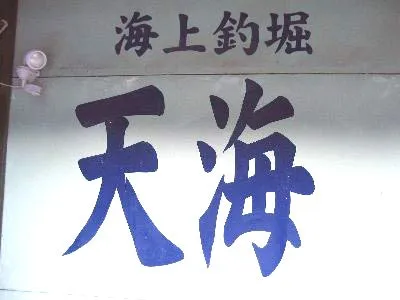 海上釣堀
天海